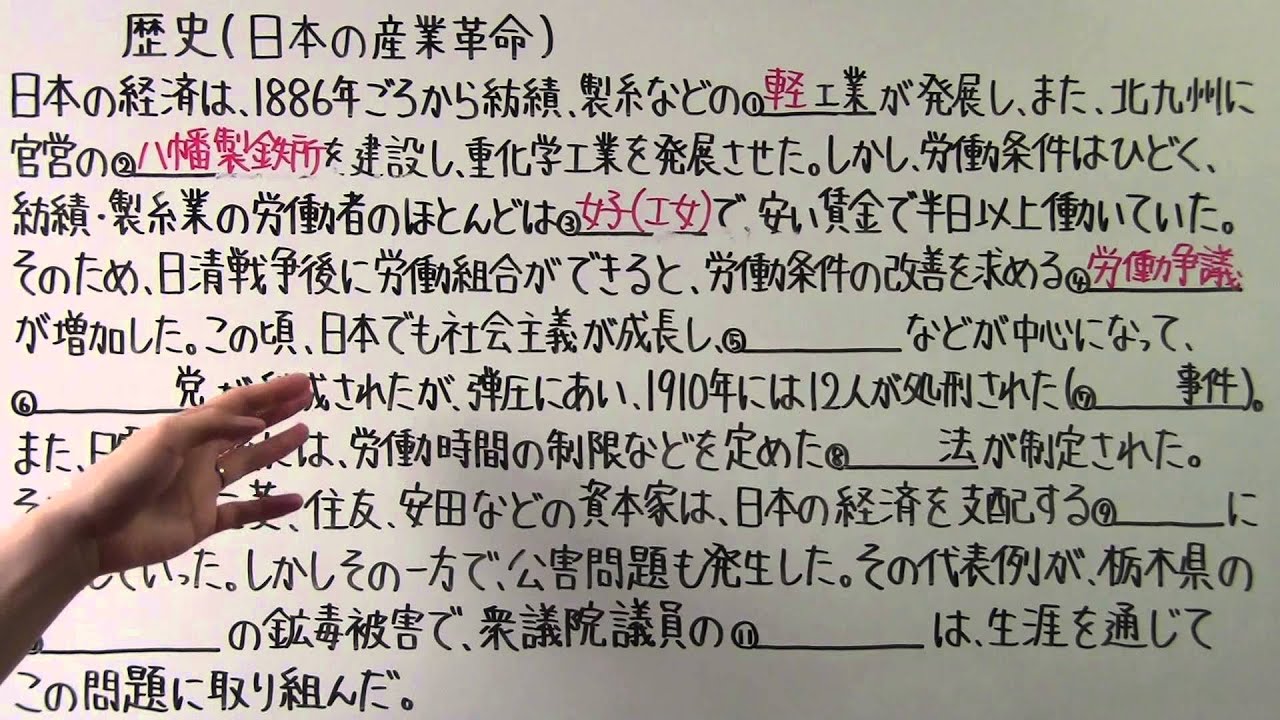 歴史(日本の産業革命)
日本の経済は、1886年ごろから紡績、製糸などの①軽工業が発展し、また、北九州に
官営の②八幡製鉄所を建設し、重化学工業を発展させた。しかし、労働条件はひどく、
紡績・製糸業の労働者のほとんどは③女子(工女)で、安い賃金で半日以上働いていた。
そのため、日清戦争後に労働組合ができると、労働条件の改善を求める④労働争議
が増加した。この頃、日本でも社会主義が成長し、⑤ などが中心になって、
⑥ 党が 成されたが、弾圧にあい、1910年には12人が処刑された(⑦ 事件)。
また、日 は、労働時間の制限などを定めた⑧ 法が制定された。
そ 菱、住友、安田などの資本家は、日本の経済を支配する⑨ に
していった。しかしその一方で、公害問題も発生した。その代表例が、栃木県の
の鉱毒被害で、衆議院議員の⑪ は、生涯を通じて
この問題に取り組んだ。